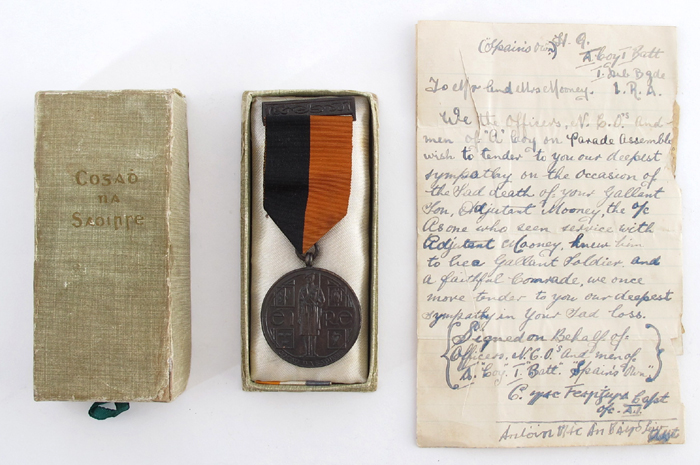 COSAḊ
NA
SAOIRSE
(Spain's Own) H. Q.
A. Coy I Batt
I. Dub Bgde
To Mr and Mrs Mooney. I. R. A.
We the Officers, N. C. O's and
men of "A" Coy on Parade Assemble
wish to tender to you our deepest
sympathy on the Occasion of
the Sad death of your Gallant
Son, Adjutant Mooney, the o/c
As one who seen service with
Adjutant Mooney, knew him
to be a Gallant Soldier, and
a faithful Comrade, we once
more tender to you our deepest
sympathy in your Sad loss.
Signed on Behalf of.
Officers, N.C.O's and men of
A. "Coy. I." Batt. "Spain's Own"
C. Mac Capt
o/c A.I.
Mac An